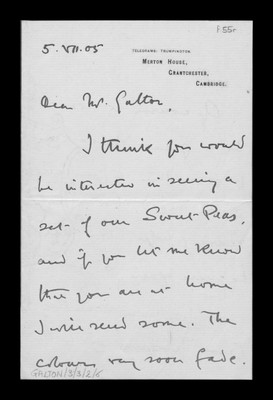 155r
5. VII. 05
TELEGRAMS: TRUMPINGTON
MERTON HOUSE,
GRANTCHESTER,
CAMBRIDGE.
Dear Mr. Galton,
I think you would
be interested in seeing a
set of our Sweet-Peas,
and if you let me know
that you are at home
I will send some. The
colours very soon fade.
GALTON/3/3/2/6